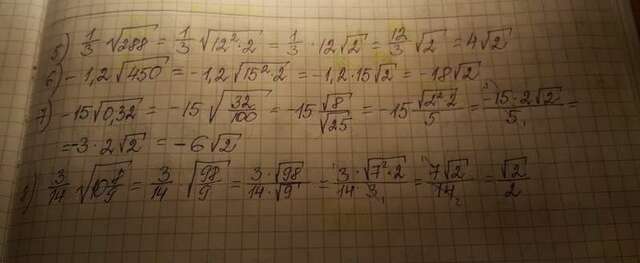 5) 1/3 √288 = 1/3 √(12²·2) = 1/3 · 12√2 = 12/3 √2 = 4√2
6) -1,2√450 = -1,2√(15²·2) = -1,2·15√2 = -18√2
7) -15√0,32 = -15√(32/100) = -15 √8/√25 = -15 √(2²·2)/5 = -15·2√2/5 =
= -3·2√2 = -6√2
8) 3/14 √(10 8/9) = 3/14 √(98/9) = 3·√98/14·√9 = 3·√(7²·2)/14·3 = 7√2/14 = √2/2